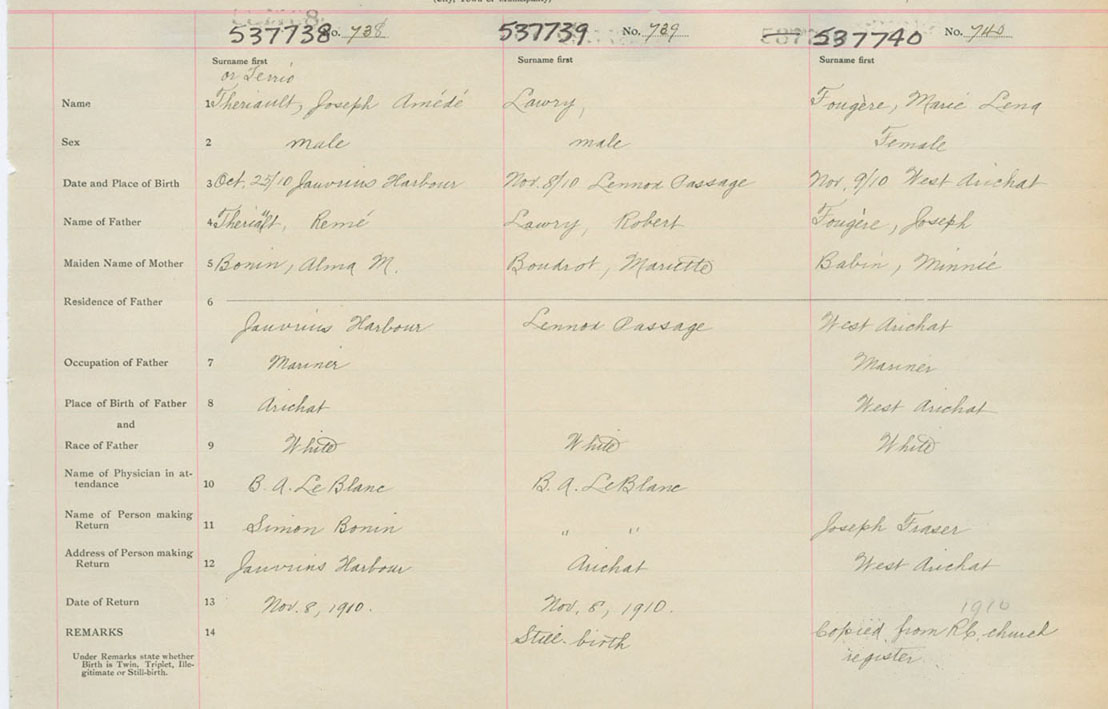 (City, Town or Municipality)
537738 No. 738 537739 No. 739 537740 No. 740
Surname first Surname first Surname first
or Terrio
Name 1 Theriault, Joseph Amédé Lawry, Fougère, Marie Lena
Sex 2 male male Female
Date and Place of Birth 3 Oct. 25/10 Janvrins Harbour Nov. 8/10 Lennox Passage Nov. 9/10 West Arichat
Name of Father 4 Theriault, Remé Lawry, Robert Fougère, Joseph
Maiden Name of Mother 5 Bonin, Alma M. Boudrot, Mariette Babin, Minnie
Residence of Father 6
Janvrins Harbour Lennox Passage West Arichat
Occupation of Father 7 Mariner Mariner
Place of Birth of Father 8 Arichat West Arichat
and
Race of Father 9 White White White
Name of Physician in at-
tendance 10 B. A. LeBlanc B. A. LeBlanc
Name of Person making
Return 11 Simon Bonin " " Joseph Fraser
Address of Person making
Return 12 Janvrins Harbour Arichat West Arichat
Date of Return 13 Nov. 8, 1910. Nov. 8, 1910. 1910
REMARKS 14 Still-birth Copied from R.C. church
register
Under Remarks state whether
Birth is Twin, Triplet, Ille-
gitimate or Still-birth.